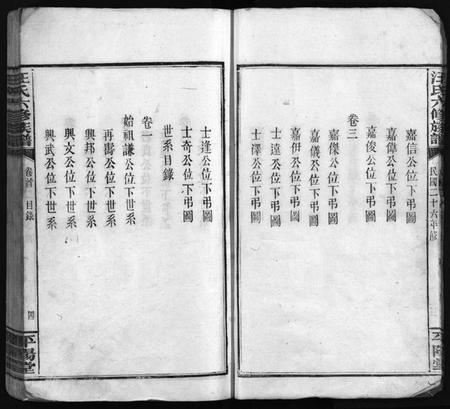 汪氏六修族譜
民國二十六年修
平陽堂
嘉信公位下弔圖
嘉俊公位下弔圖
卷三
嘉傑公位下弔圖
嘉儀公位下弔圖
嘉伊公位下弔圖
士達公位下弔圖
士澤公位下弔圖
士逢公位下弔圖
士奇公位下弔圖
世系目錄
卷一
始祖謙公位下世系
再書公位下世系
興邦公位下世系
興文公位下世系
興武公位下世系
汪氏六修族譜
卷首
目錄
四
平陽堂